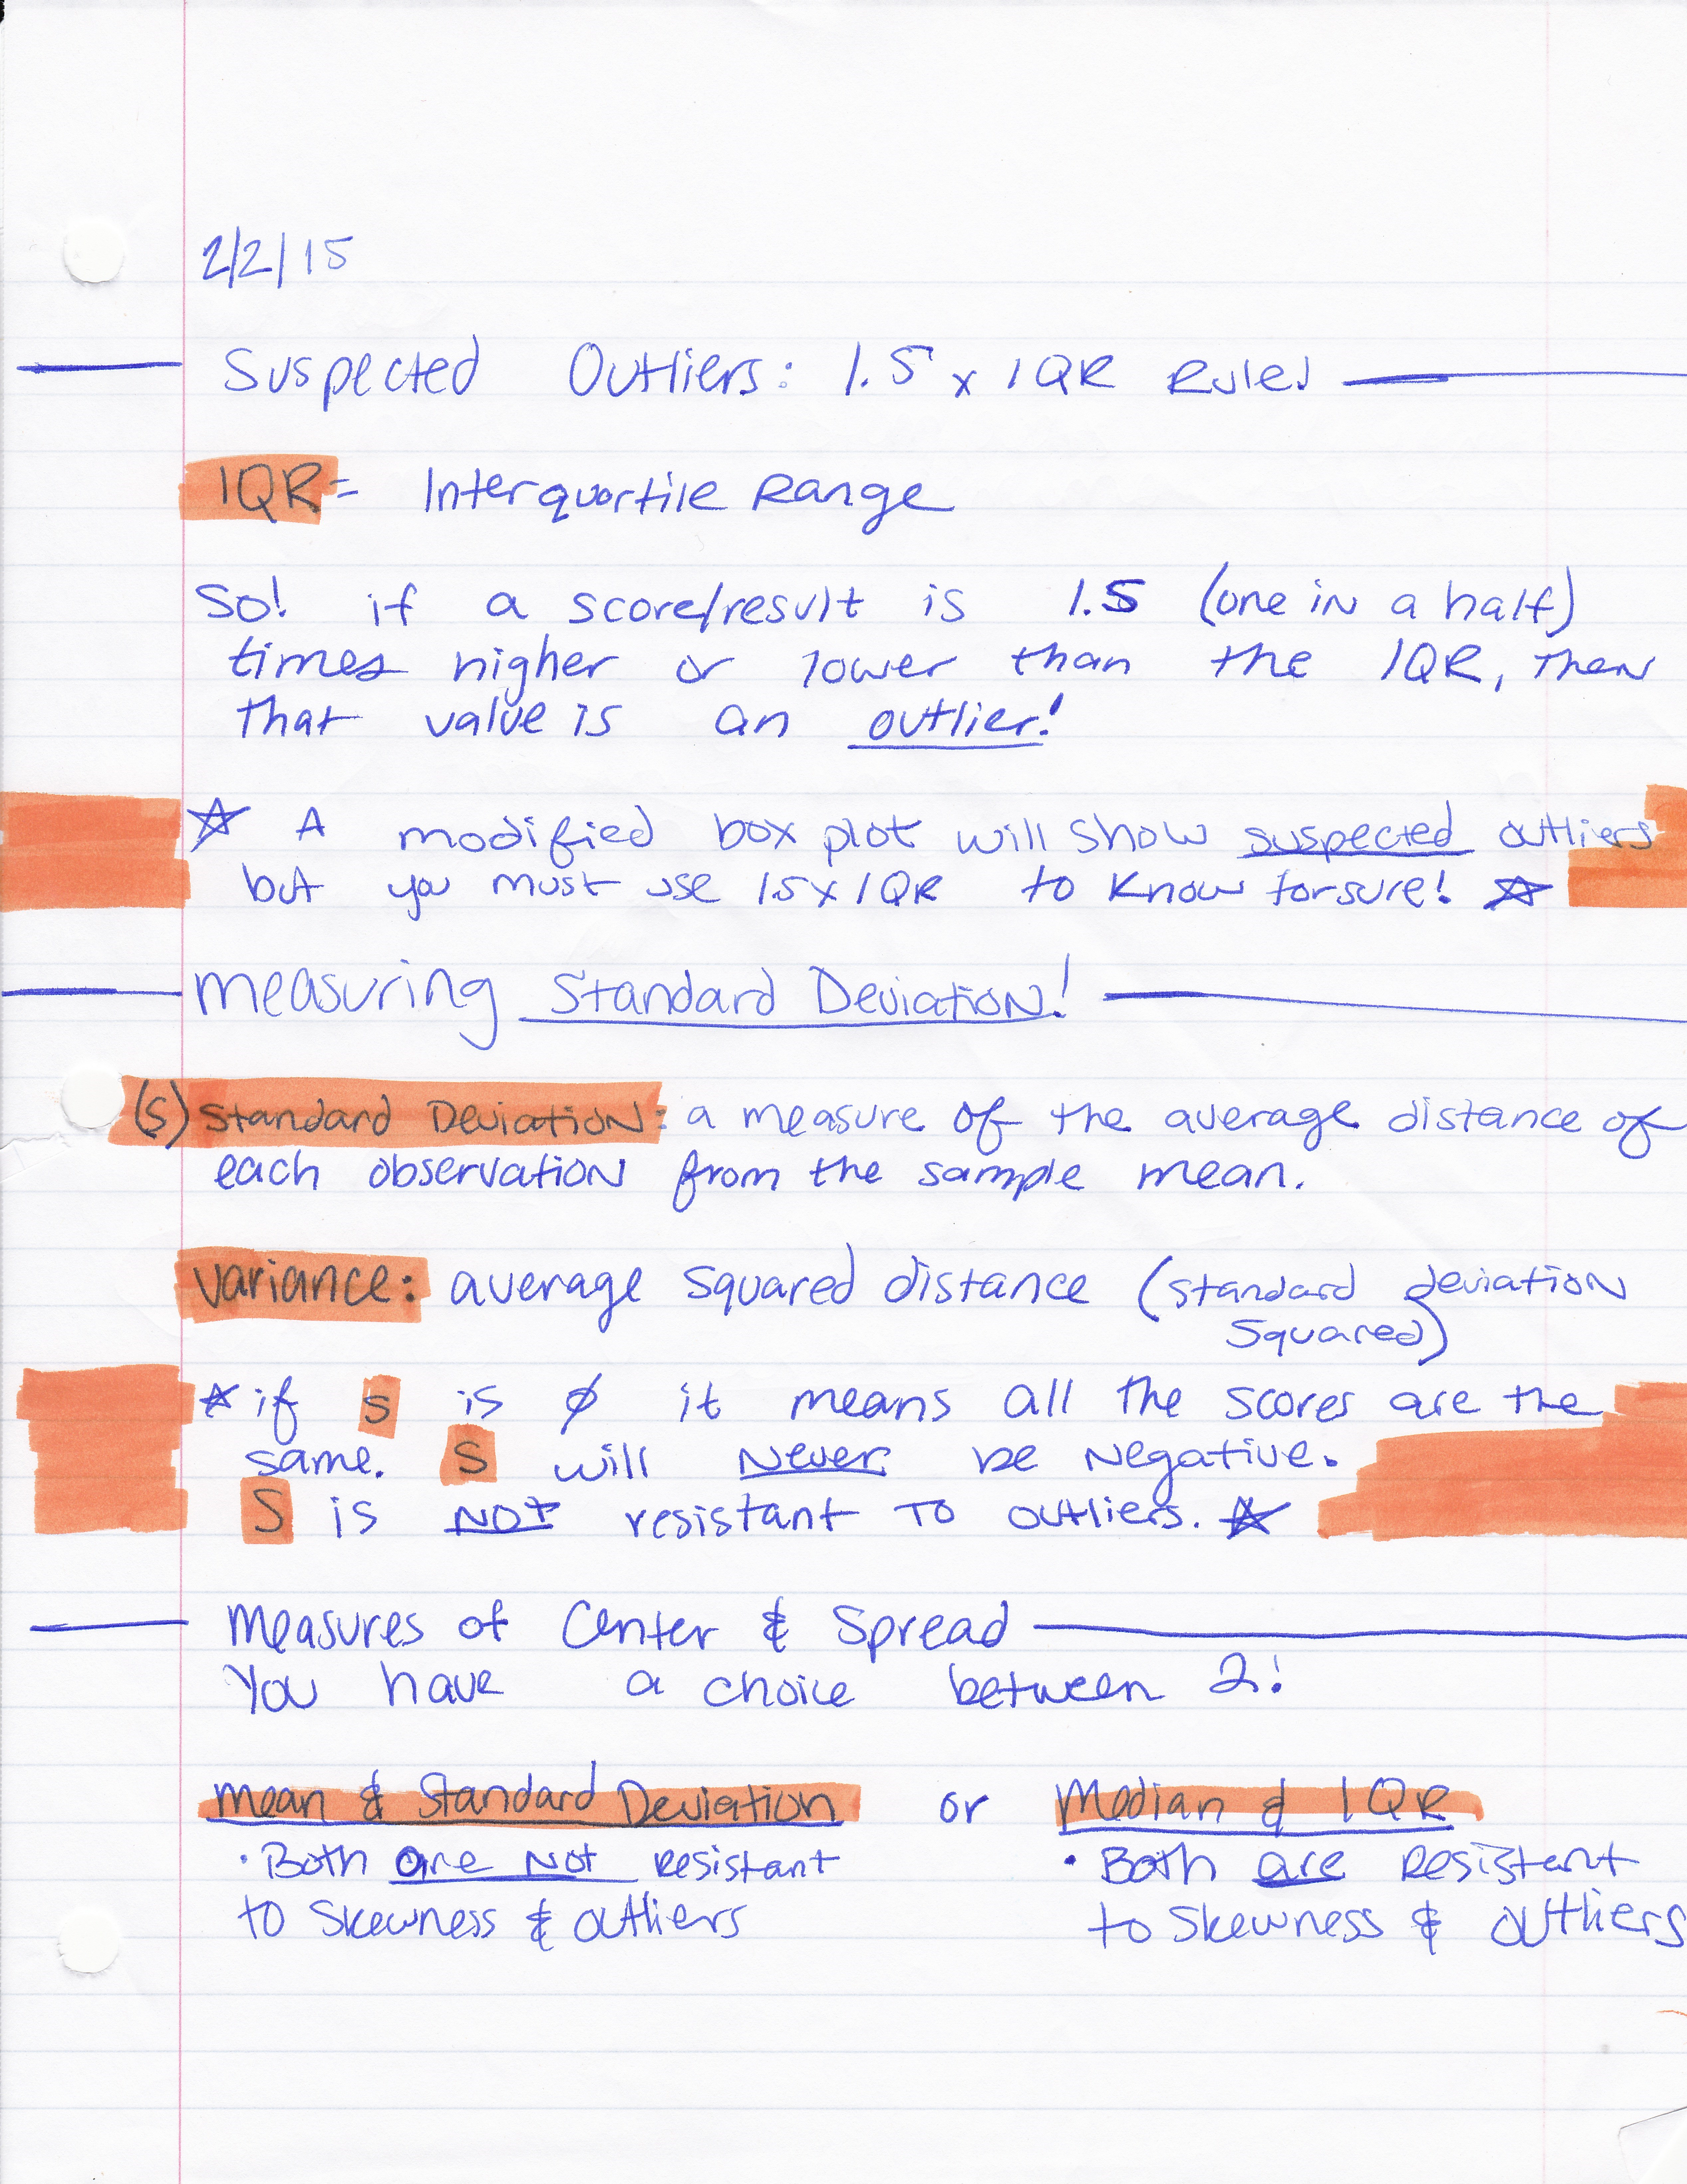 2/2/15
Suspected Outliers: 1.5 x IQR Rule!
IQR = Interquartile Range
So! if a score/result is 1.5 (one in a half)
times higher or lower than the IQR, then
that value is an outlier!
☆ A modified box plot will show suspected outliers
but you must use 1.5 x IQR to know for sure! ☆
Measuring Standard Deviation!
(s) Standard Deviation: a measure of the average distance of
each observation from the sample mean.
Variance: average squared distance (standard deviation
squared)
☆ if s is Ø it means all the scores are the
same. S will Never be Negative.
S is NOT resistant to outliers. ☆
Measures of Center & Spread
You have a choice between 2!
Mean & Standard Deviation or Median & IQR
• Both are Not resistant • Both are resistent
to Skewness & outliers to Skewness & outliers